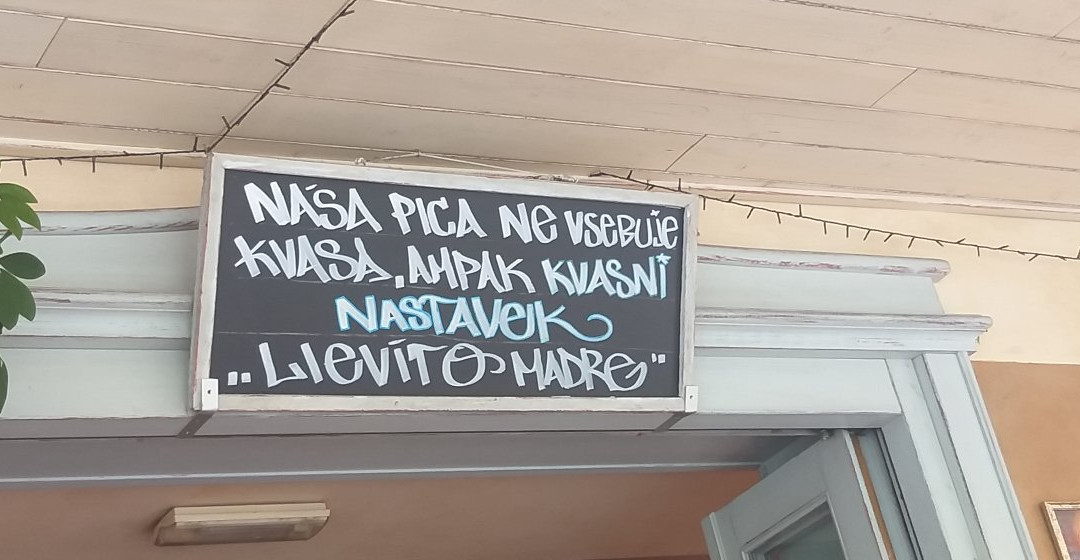 NAŠA PICA NE VSEBUJE
KVASA, AMPAK KVASNI
NASTAVEK
„LIEVITO MADRE"